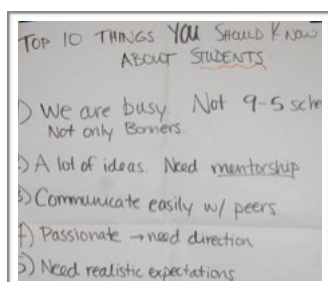 TOP 10 THINGS YOU SHOULD KNOW
ABOUT STUDENTS
1) We are busy. Not 9-5 sche
Not only Bonners.
2) A lot of ideas. Need mentorship
3) Communicate easily w/ peers.
4) Passionate → need direction
5) Need realistic expectations